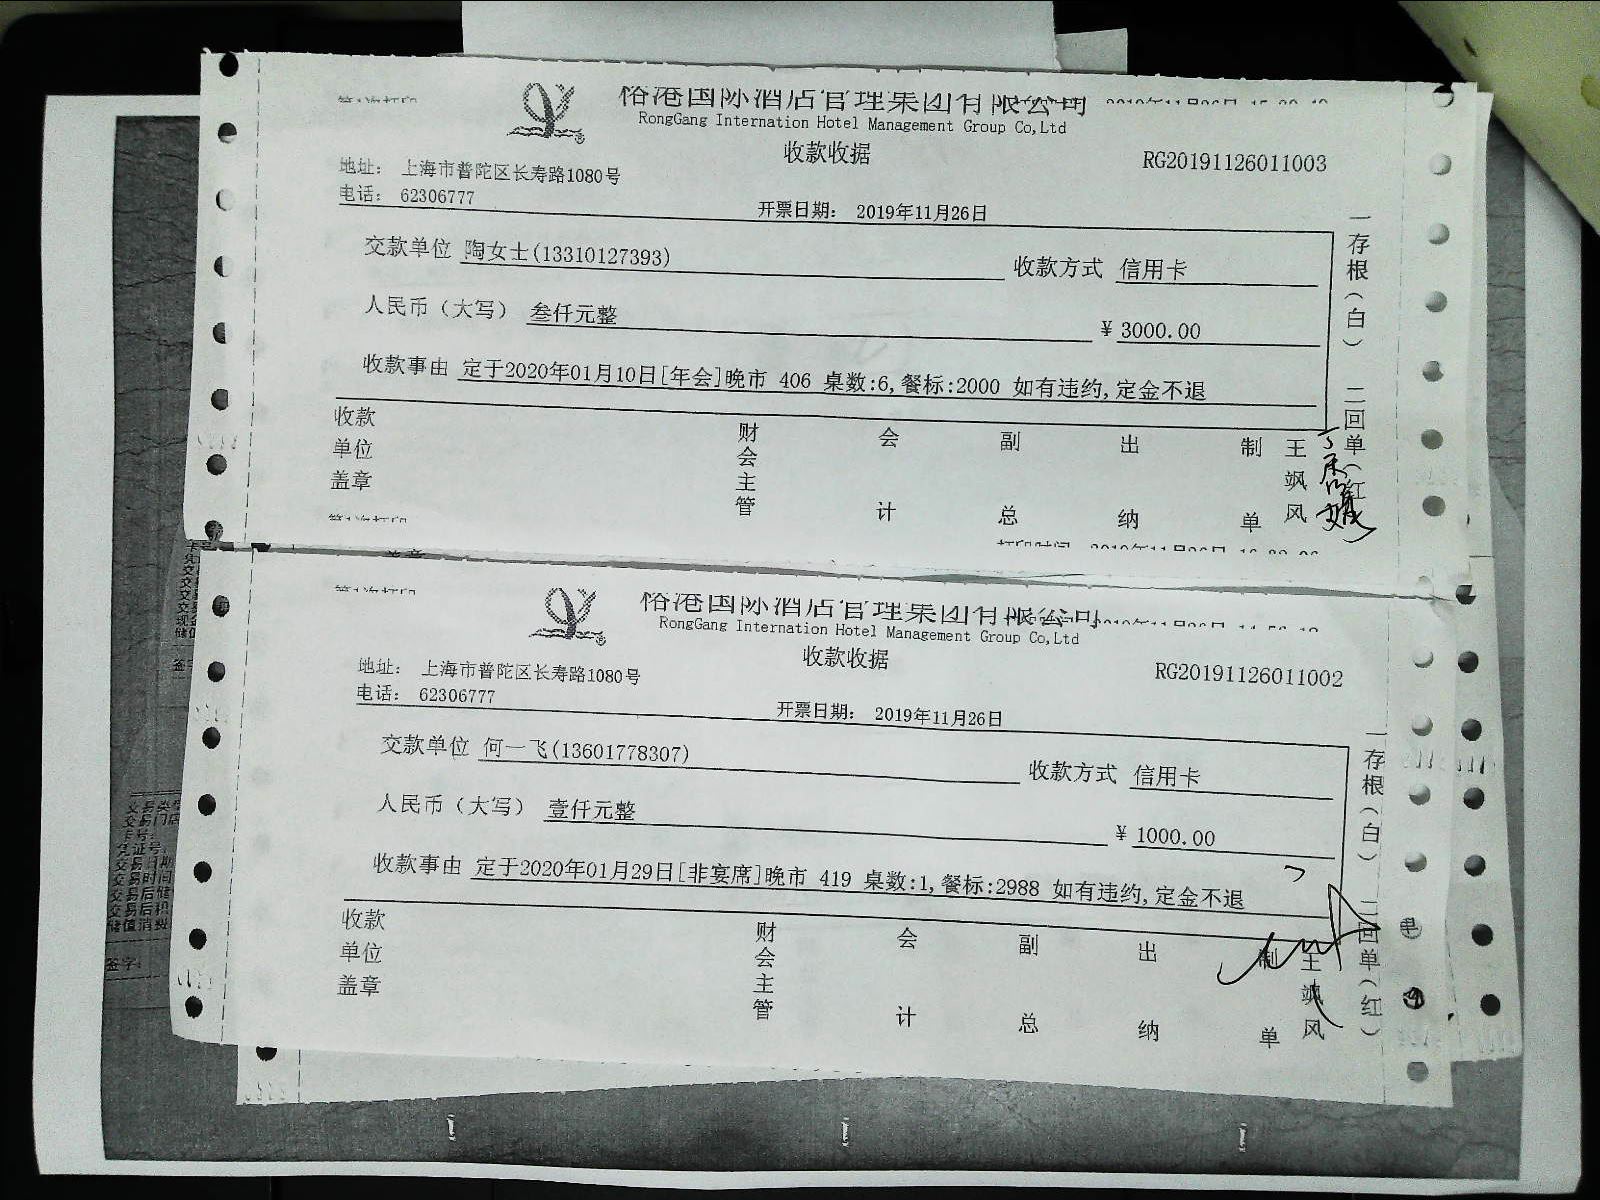 裕港国际酒店管理集团有限公司
RongGang Internation Hotel Management Group Co,Ltd
收款收据
RG20191126011003
地址： 上海市普陀区长寿路1080号
电话： 62306777
开票日期： 2019年11月26日
交款单位 陶女士(13310127393)
收款方式 信用卡
人民币（大写） 叁仟元整
¥ 3000.00
收款事由 定于2020年01月10日[年会]晚市 406 桌数:6,餐标:2000 如有违约,定金不退
一存根（白） 二回单（红）
收款单位盖章
财会主管
会计
副总
出纳
制单
王飒风
裕港国际酒店管理集团有限公司
RongGang Internation Hotel Management Group Co,Ltd
收款收据
RG20191126011002
地址： 上海市普陀区长寿路1080号
电话： 62306777
开票日期： 2019年11月26日
交款单位 何一飞(13601778307)
收款方式 信用卡
人民币（大写） 壹仟元整
¥ 1000.00
收款事由 定于2020年01月29日[非宴席]晚市 419 桌数:1,餐标:2988 如有违约,定金不退
一存根（白） 二回单（红）
收款单位盖章
财会主管
会计
副总
出纳
制单
王飒风